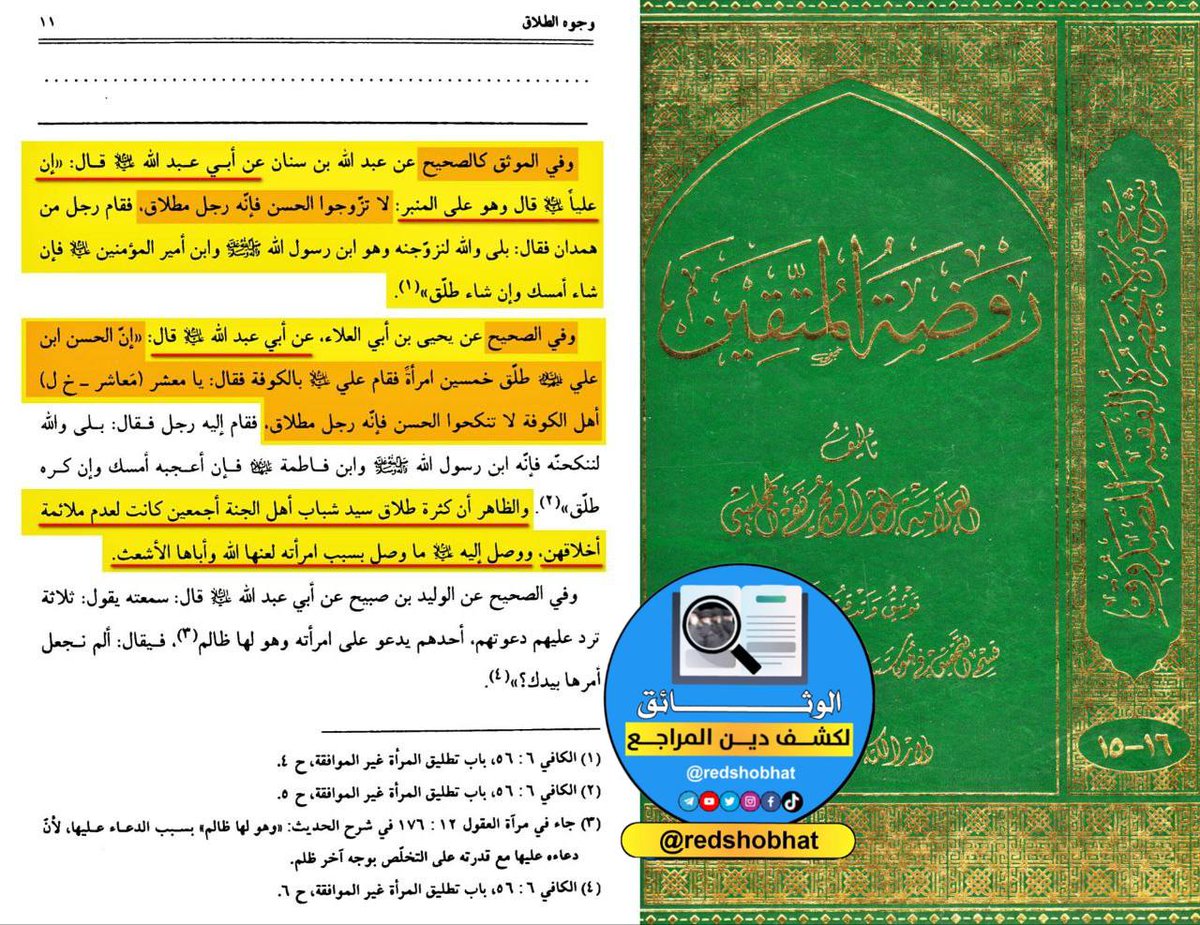 وجوه الطلاق
١١
وفي الموثق كالصحيح عن عبد الله بن سنان عن أبي عبد الله عليه السلام قال: «إن
علياً عليه السلام قال وهو على المنبر: لا تزّوجوا الحسن فإنّه رجل مطلاق، فقام رجل من
همدان فقال: بلى والله لنزوّجنه وهو ابن رسول الله صلى الله عليه وآله وسلم وابن أمير المؤمنين عليه السلام فإن
شاء أمسك وإن شاء طلّق»(١).
وفي الصحيح عن يحيى بن أبي العلاء، عن أبي عبد الله عليه السلام قال: «إنّ الحسن ابن
علي عليهما السلام طلّق خمسين امرأةً فقام علي عليه السلام بالكوفة فقال: يا معشر (مَعاشر ـ خ ل)
أهل الكوفة لا تنكحوا الحسن فإنّه رجل مطلاق، فقام إليه رجل فـقال: بـلى والله
لننكحنّه فإنّه ابن رسول الله صلى الله عليه وآله وسلم وابن فـاطمة عليها السلام فـإن أعـجبه أمسك وإن كـره
طلّق»(٢). والظاهر أن كثرة طلاق سيد شباب أهل الجنة أجمعين كانت لعدم ملائمة
أخلاقهن، ووصل إليه عليه السلام ما وصل بسبب امرأته لعنها الله وأباها الأشعث.
وفي الصحيح عن الوليد بن صبيح عن أبي عبد الله عليه السلام قال: سمعته يقول: ثلاثة
ترد عليهم دعوتهم، أحدهم يدعو على امرأته وهو لها ظالم(٣)، فـيقال: ألم نـجعل
أمرها بيدك؟»(٤).
(١) الكافي ٦ : ٥٦، باب تطليق المرأة غير الموافقة، ح ٤.
(٢) الكافي ٦ : ٥٦، باب تطليق المرأة غير الموافقة، ح ٥.
(٣) جاء في مرآة العقول ١٢ : ١٧٦ في شرح الحديث: «وهو لها ظالم» بسبب الدعاء عليها، لأنّ
دعاءه عليها مع قدرته على التخلّص بوجه آخر ظلم.
(٤) الكافي ٦ : ٥٦، باب تطليق المرأة غير الموافقة، ح ٦.
روضة المتقين
تأليف
العلامة المولى محمد تقي المجلسي
شرح من لا يحضره الفقيه للصدوق
١٥-١٦
الوثائق
لكشف دين المراجع
@redshobhat
@redshobhat